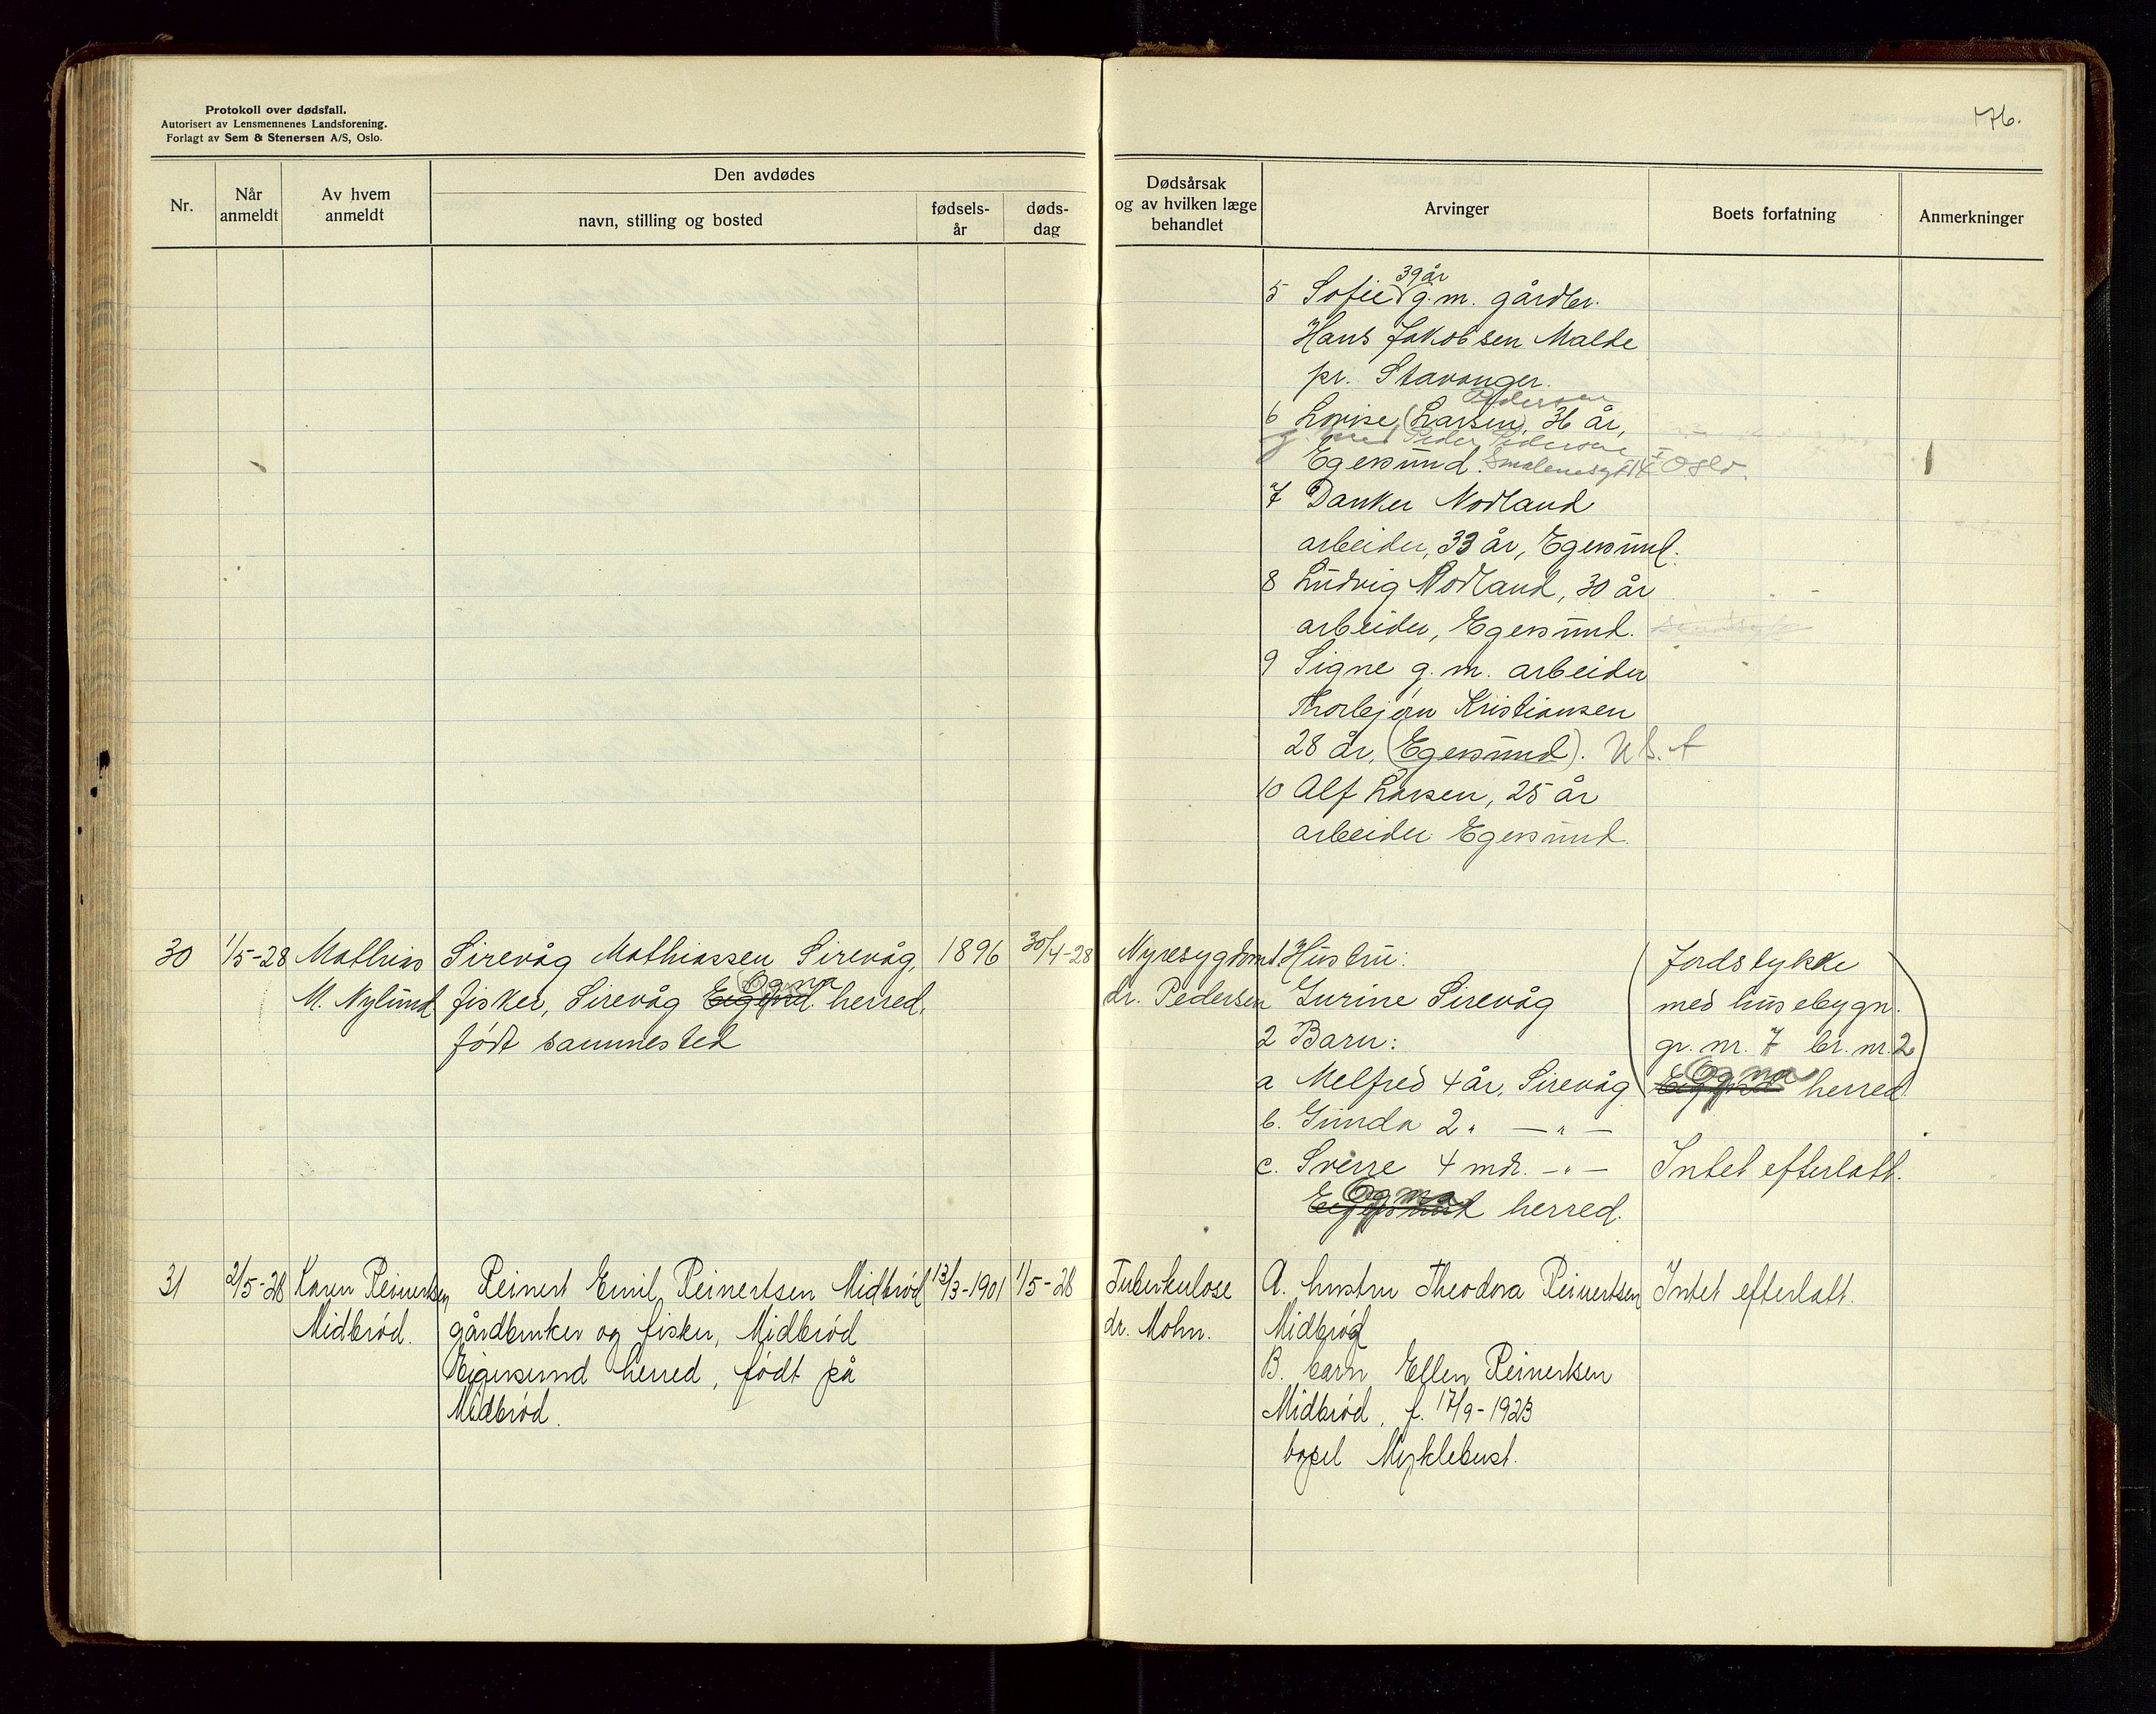 Protokoll over dødsfall.
Autorisert av Lensmennenes Landsforening.
Forlagt av Sem & Stenersen A/S, Oslo.
176.
Nr.
Når anmeldt
Av hvem anmeldt
Den avdødes
navn, stilling og bosted
fødsels-år
døds-dag
Dødsårsak og av hvilken læge behandlet
Arvinger
Boets forfatning
Anmerkninger
39 år
5 Sofie g. m. gårdbr.
Hans Jakobsen Malde
pr. Stavanger.
Pedersen
6 Lovise (Larsen), 36 år,
g. med Peder Pedersen
Egersund. Oslo.
7 Danker Nodland
arbeider, 33 år, Egersund.
8 Ludvig Nodland, 30 år
arbeider, Egersund.
9 Signe g. m. arbeider
Thorbjørn Kristiansen
28 år, (Egersund). U.S.A
10 Alf Larsen, 25 år
arbeider Egersund.
30 1/5-28 Mathias Sirevåg Mathiassen Sirevåg, 1896 30/4-28 Nyresygdom 1 Hustru: Jordstykke
Ogna
M. Nylund fisker, Sirevåg Eigersund herred, dr. Pedersen Gurine Sirevåg med husebygn.
født sammested 2 Barn: gr. nr. 7 br. nr. 2
Ogna
a Melfred 4 år, Sirevåg Eigersund herred
b. Gunda 2 " — " —
c. Sverre 4 mdr. — " — Intet efterlatt.
Ogna
Eigersund herred.
31 2/5-28 Karen Reinertsen Reinert Emil Reinertsen Midbrød 13/3-1901 1/5-28 Tuberkulose A. hustru Theodora Reinertsen Intet efterlatt.
Midbrød. gårdbruker og fisker, Midbrød dr. Mohn. Midbrød
Eigersund herred, født på B. barn Ellen Reinertsen
Midbrød. Midbrød, f. 17/9-1923
bopel Myklebust.